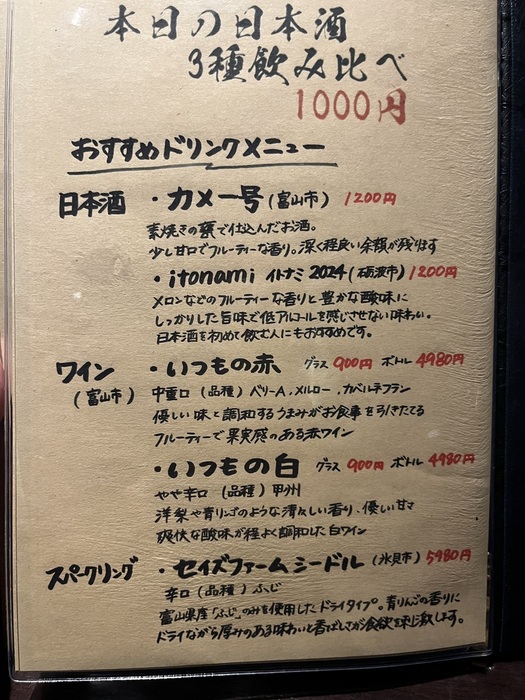 本日の日本酒
3種飲み比べ
1000円
おすすめドリンクメニュー
日本酒 ・カメ一号(富山市) 1200円
素焼きの甕で仕込んだお酒。
少し甘口でフルーティーな香り。深く程良い余韻が残ります
・itonami イトナミ 2024(砺波市) 1200円
メロンなどのフルーティーな香りと豊かな酸味に
しっかりした旨味で低アルコールを感じさせない味わい。
日本酒を初めて飲む人にもおすすめです。
ワイン ・いつもの赤 グラス 900円 ボトル 4980円
(富山市) 中重口 (品種) ベリーA、メルロー、カベルネフラン
優しい味と調和するうまみがお食事を引きたてる
フルーティーで果実感のある赤ワイン
・いつもの白 グラス 900円 ボトル 4980円
やや辛口 (品種) 甲州
洋梨や青リンゴのような清々しい香り、優しい甘さ
爽快な酸味が程よく調和した白ワイン
スパークリング ・セイズファームシードル (氷見市) 5980円
辛口(品種)ふじ
富山県産「ふじ」のみを使用したドライタイプ。青りんごの香りに
ドライながら厚みのある味わいと香ばしさが食欲を刺激します。